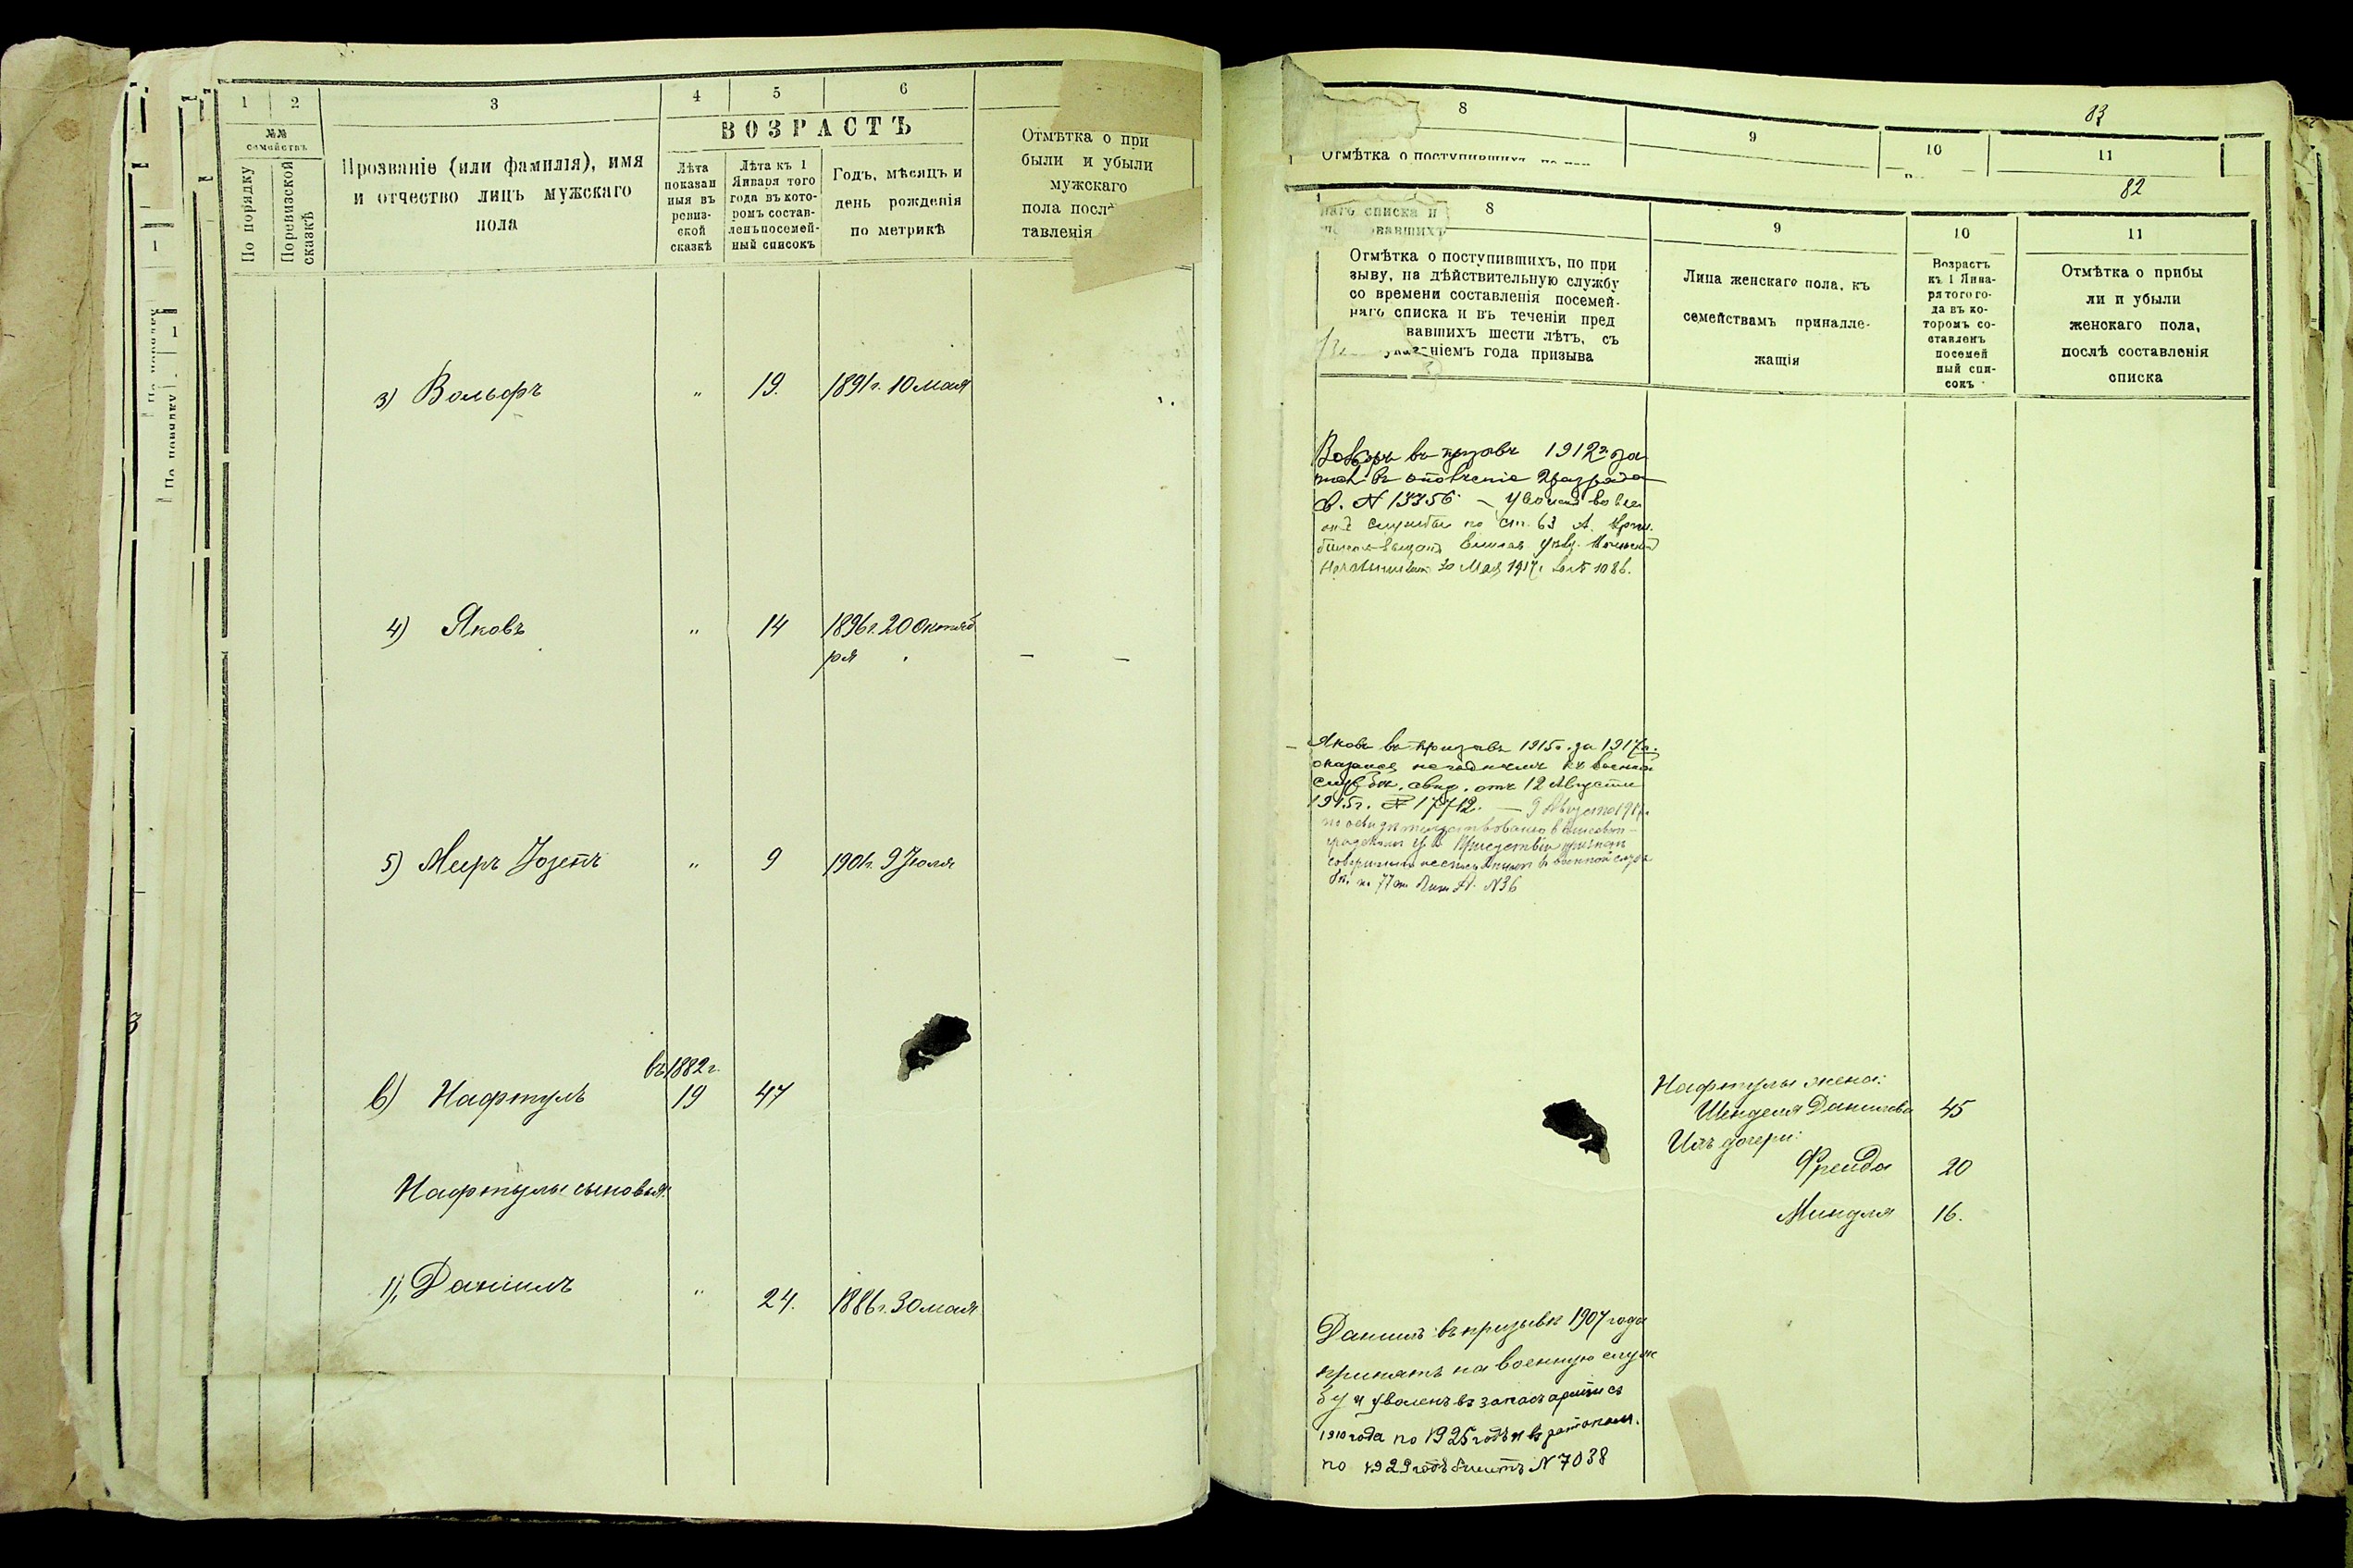 1
2
3
4
5
6
№№
семействъ
По порядку
По ревизской
сказкѣ
Прозваніе (или фамилія), имя
и отчество лицъ мужскаго
пола
ВОЗРАСТЪ
Лѣта
показан
ныя въ
ревиз-
ской
сказкѣ
Лѣта къ 1
Января того
года въ кото-
ромъ состав-
ленъ посемей-
ный списокъ
Годъ, мѣсяцъ и
день рожденія
по метрикѣ
Отмѣтка о при
были и убыли
мужскаго
пола послѣ
тавленія
3) Вольфъ " 19. 1891 г. 10 мая
4) Яковъ " 14 1896 г. 20 Октяб
ря
5) Меръ Іозепъ " 9 1901 г. 9 Іюля
въ 1882 г.
в) Нафтулъ 19 47
Нафтулы сыновья:
1), Даніилъ " 24. 1886 г. 30 мая
8
9
10
11
83
Отмѣтка о поступившихъ
82
8
9
10
11
наго списка и
вавшихъ
Отмѣтка о поступившихъ, по при
зыву, на дѣйствительную службу
со времени составленія посемей-
наго списка и въ теченіи пред
вавшихъ шести лѣтъ, съ
указаніемъ года призыва
Лица женскаго пола, къ
семействамъ принадле-
жащія
Возрастъ
къ 1 Янва-
ря того го-
да въ ко-
торомъ со-
ставленъ
посемей
ный спи-
сокъ
Отмѣтка о прибы
ли и убыли
женскаго пола,
послѣ составленія
списка
въ призывъ 1912 г. за
въ ополченіе 2 разряда
с. № 13356 –
отъ службы по ст. 63 А.
30 Мая 1917 г. за № 1086.
Яковъ въ призывъ 1915 г. за 1917 г.
оказался негоднымъ къ военной
службѣ, свид. отъ 12 Августа
1915 г. № 17712. – 9 Августа 191
Присутствіи признанъ
совершенно къ военной служ
бѣ. по 77 ст. Лит. А. № 36
Нафтулы жена:
Шендля Данилова 45
Ихъ дочери:
Фрейда 20
Миндля 16.
Даніилъ въ призывѣ 1907 года
принятъ на военную служ
бу и уволенъ въ запасъ арміи съ
1910 года по 1925 годъ и въ
по 1929 годъ билетъ № 7038